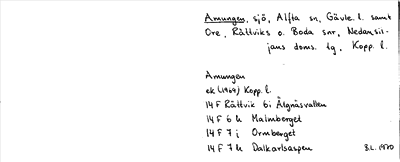 Amungen, sjö, Alfta sn, Gävle. l. samt
Ore, Rättviks o. Boda snr, Nedansil-
jans doms. tg, Kopp. l.
Amungen
ek (1969) Kopp. l.
14 F Rättvik 6i Älgnäsvallen
14 F 6 h Malmberget
14 F 7 j Ormberget
14 F 7 h Dalkarlsaspen B.L. 1970